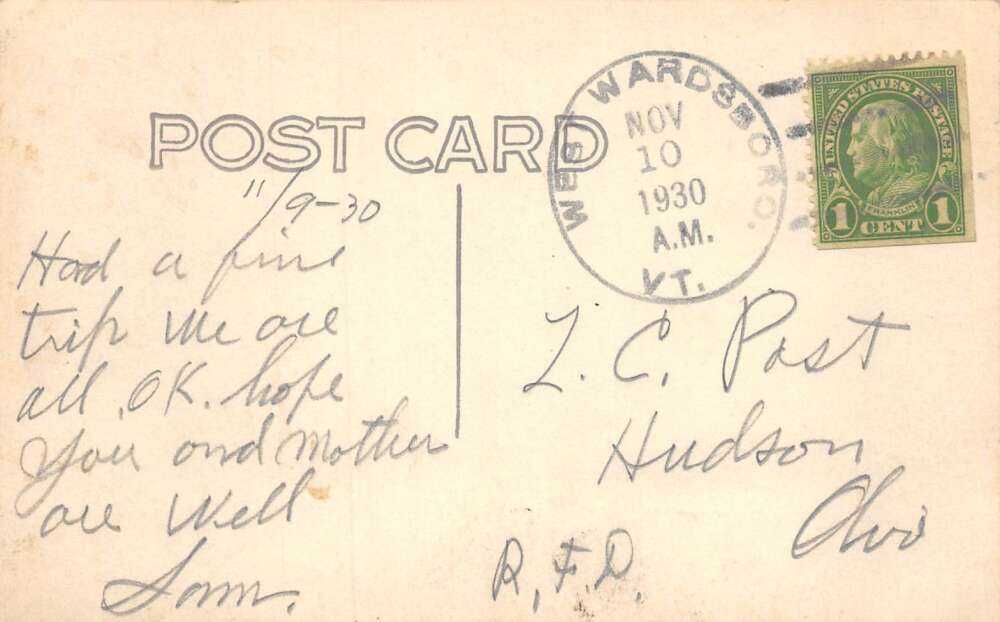 POST CARD
WEST WARDSBORO.
NOV
10
1930
A.M.
VT.
UNITED STATES POSTAGE
FRANKLIN
1 CENT 1
11/9-30
Had a fine
trip We are
all OK. hope
you and Mother
are well
Sam.
L. C. Post
Hudson
Ohio
R.F.D.